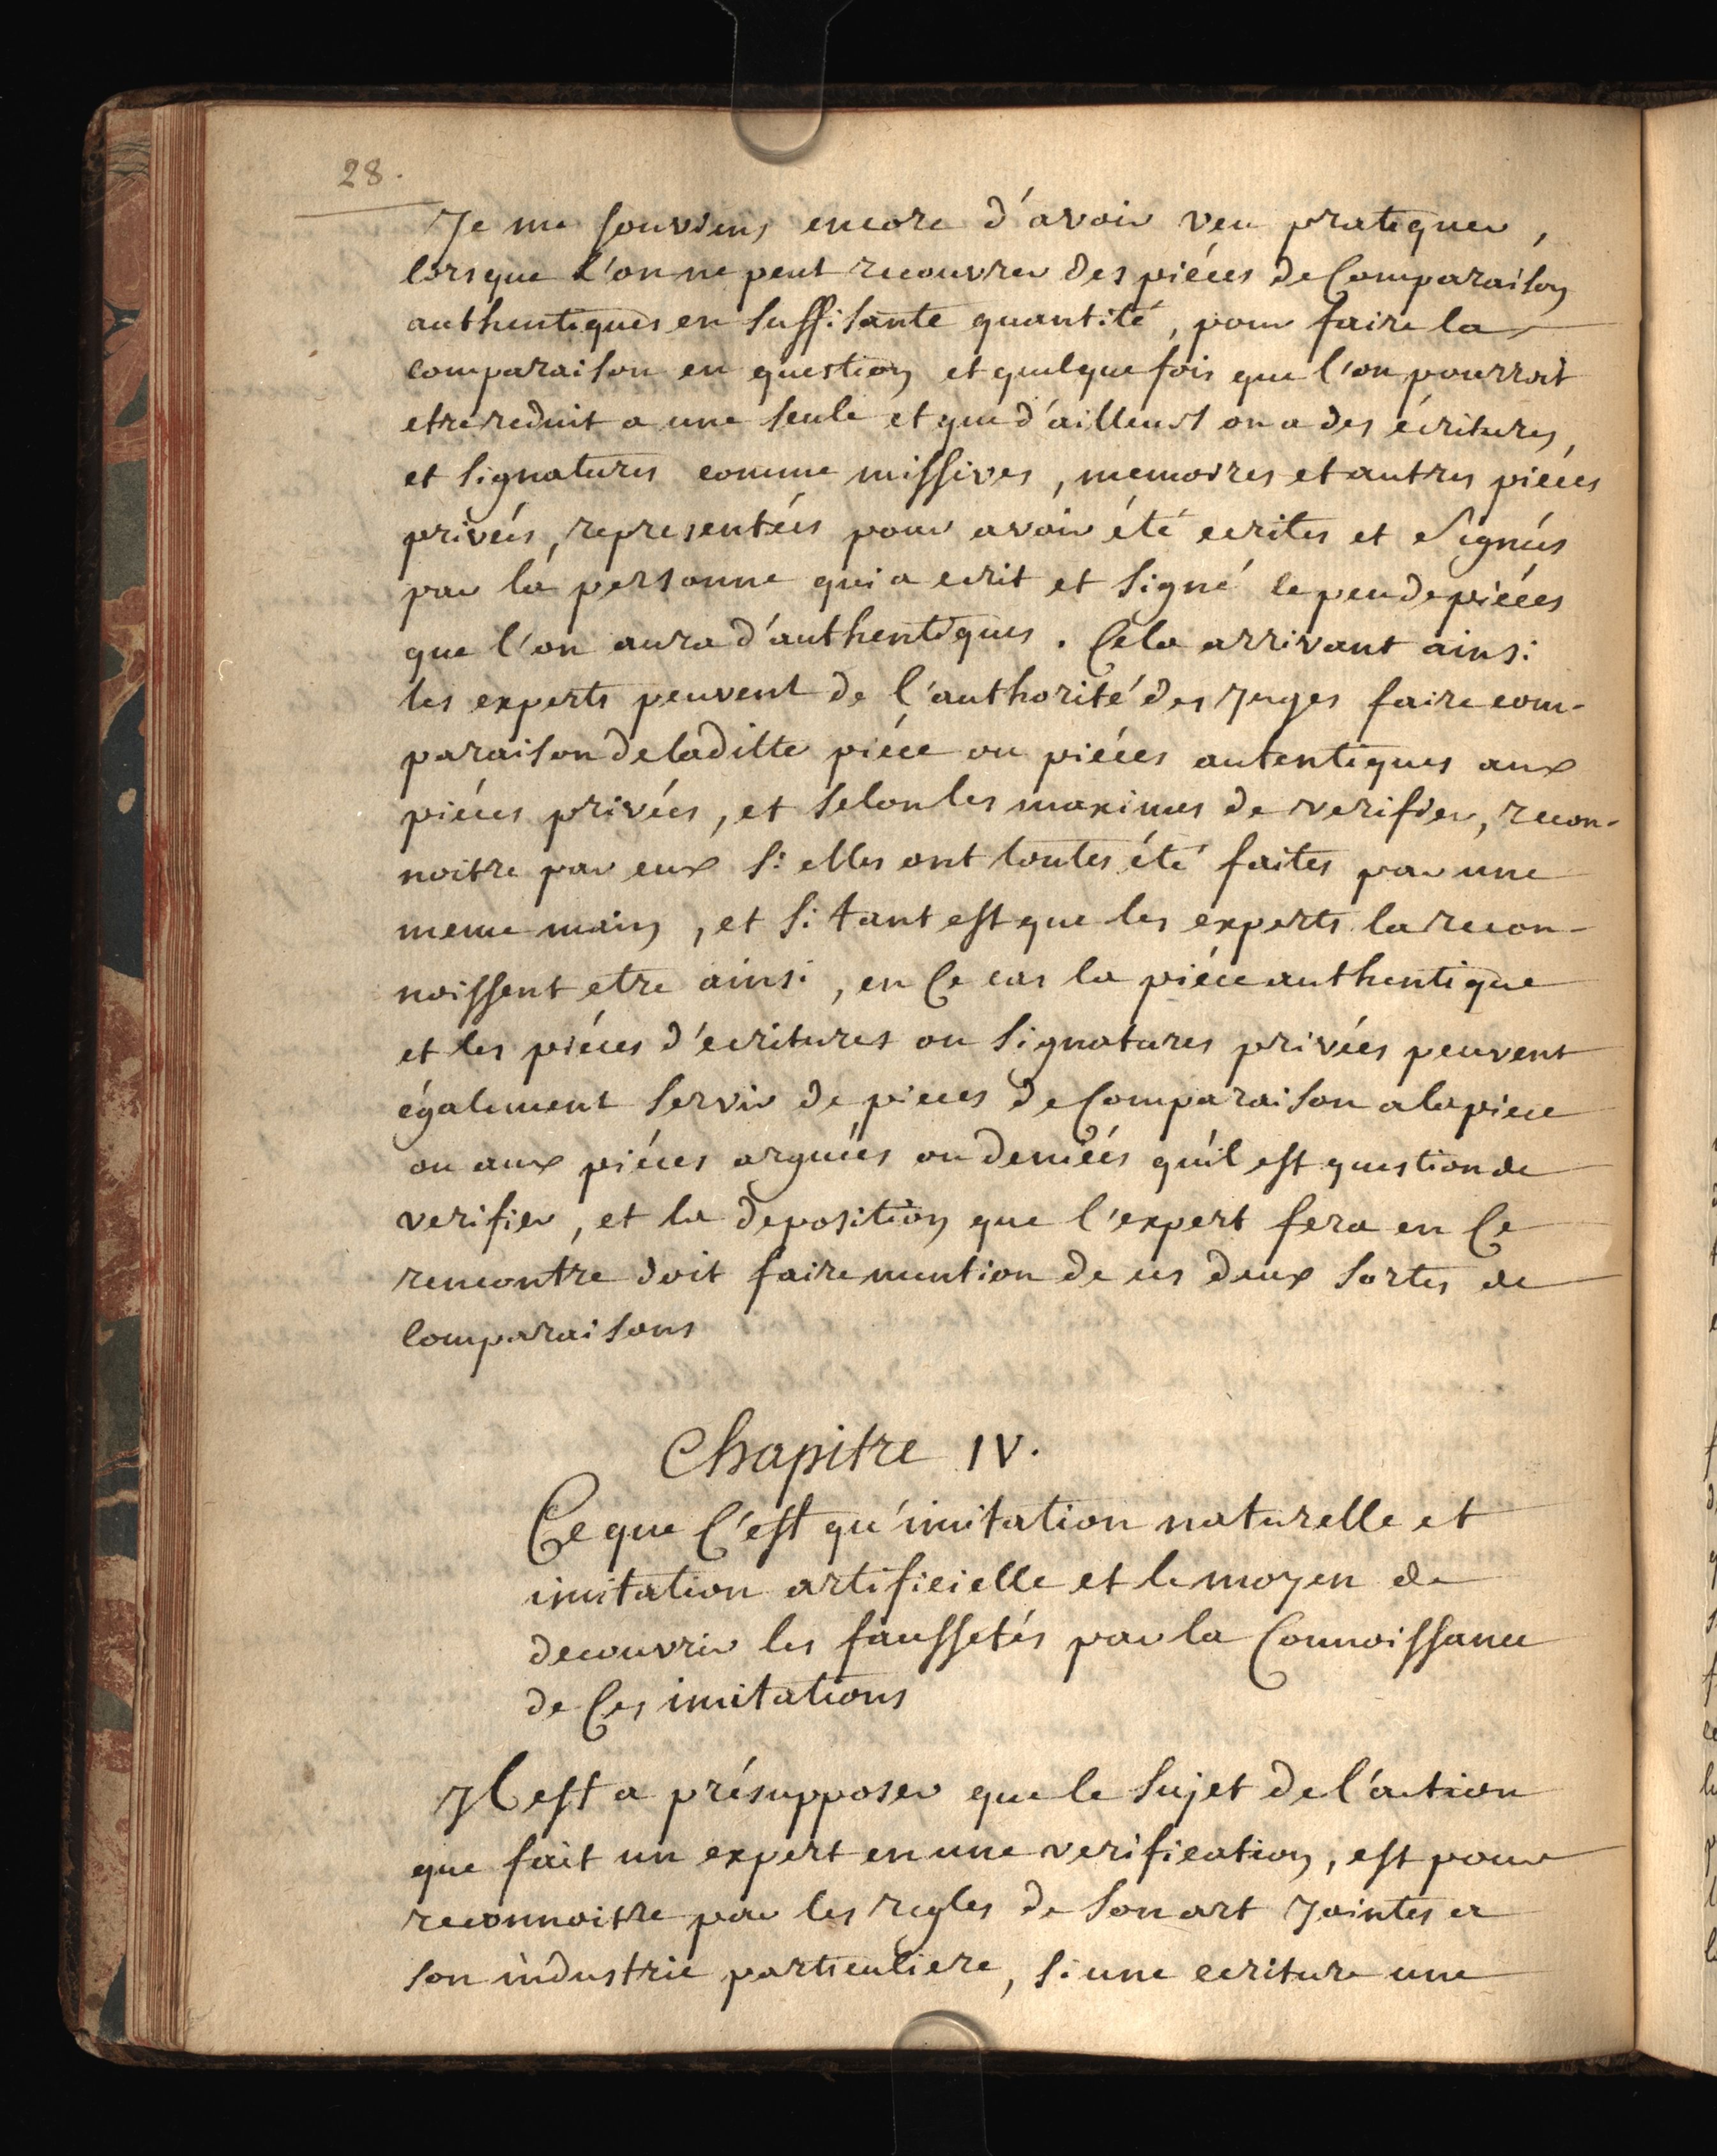 28.
Je me souviens encore d'avoir veu pratiquer,
lorsque l'on ne peut recouvrer des piéces de Comparaison
authentiques en suffisante quantité, pour faire la
comparaison en question et quelque fois que l'on pourroit
etre reduit a une seule et que d'ailleurs on a des écritures,
et signatures comme missives, memoires et autres piéces
privées, representées pour avoir été ecrites et signées
par la personne qui a ecrit et signé le peu de piéces
que l'on aura d'authentiques. Cela arrivant ainsi
les experts peuvent de l'authorité des Juges faire com-
paraison de laditte piéce ou piéces autentiques aux
piéces privées, et selon les maximes de verifier, recon-
noitre par eux si elles ont toutes été faites par une
meme main, et si tant est que les experts la recon-
noissent etre ainsi, en Ce cas la piéce authentique
et les piéces d'ecritures ou signatures privées peuvent
également servir de pieces de Comparaison a la piece
ou aux piéces arguées ou deniées qu'il est question de
verifier, et la deposition que l'expert fera en Ce
rencontre doit faire mention de ces deux sortes de
comparaisons
Chapitre IV.
Ce que C'est qu'imitation naturelle et
imitation artificielle et le moyen de
decouvrir les faussetés par la Connoissance
de Ces imitations
Il est a présupposer que le sujet de l'action
que fait un expert en une verification, est pour
reconnoitre par les regles de son art Jointes a
son industrie particuliere, si une ecriture une